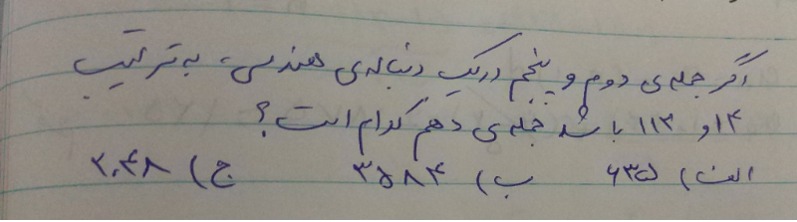 اگر جمله‌ی دوم و پنجم در یک دنباله‌ی هندسی، به ترتیب
۱۴ و ۱۱۲ باشد جمله‌ی دهم کدام است؟
الف) ۶۳۵ ب) ۳۵۸۴ ج) ۲۰۴۸